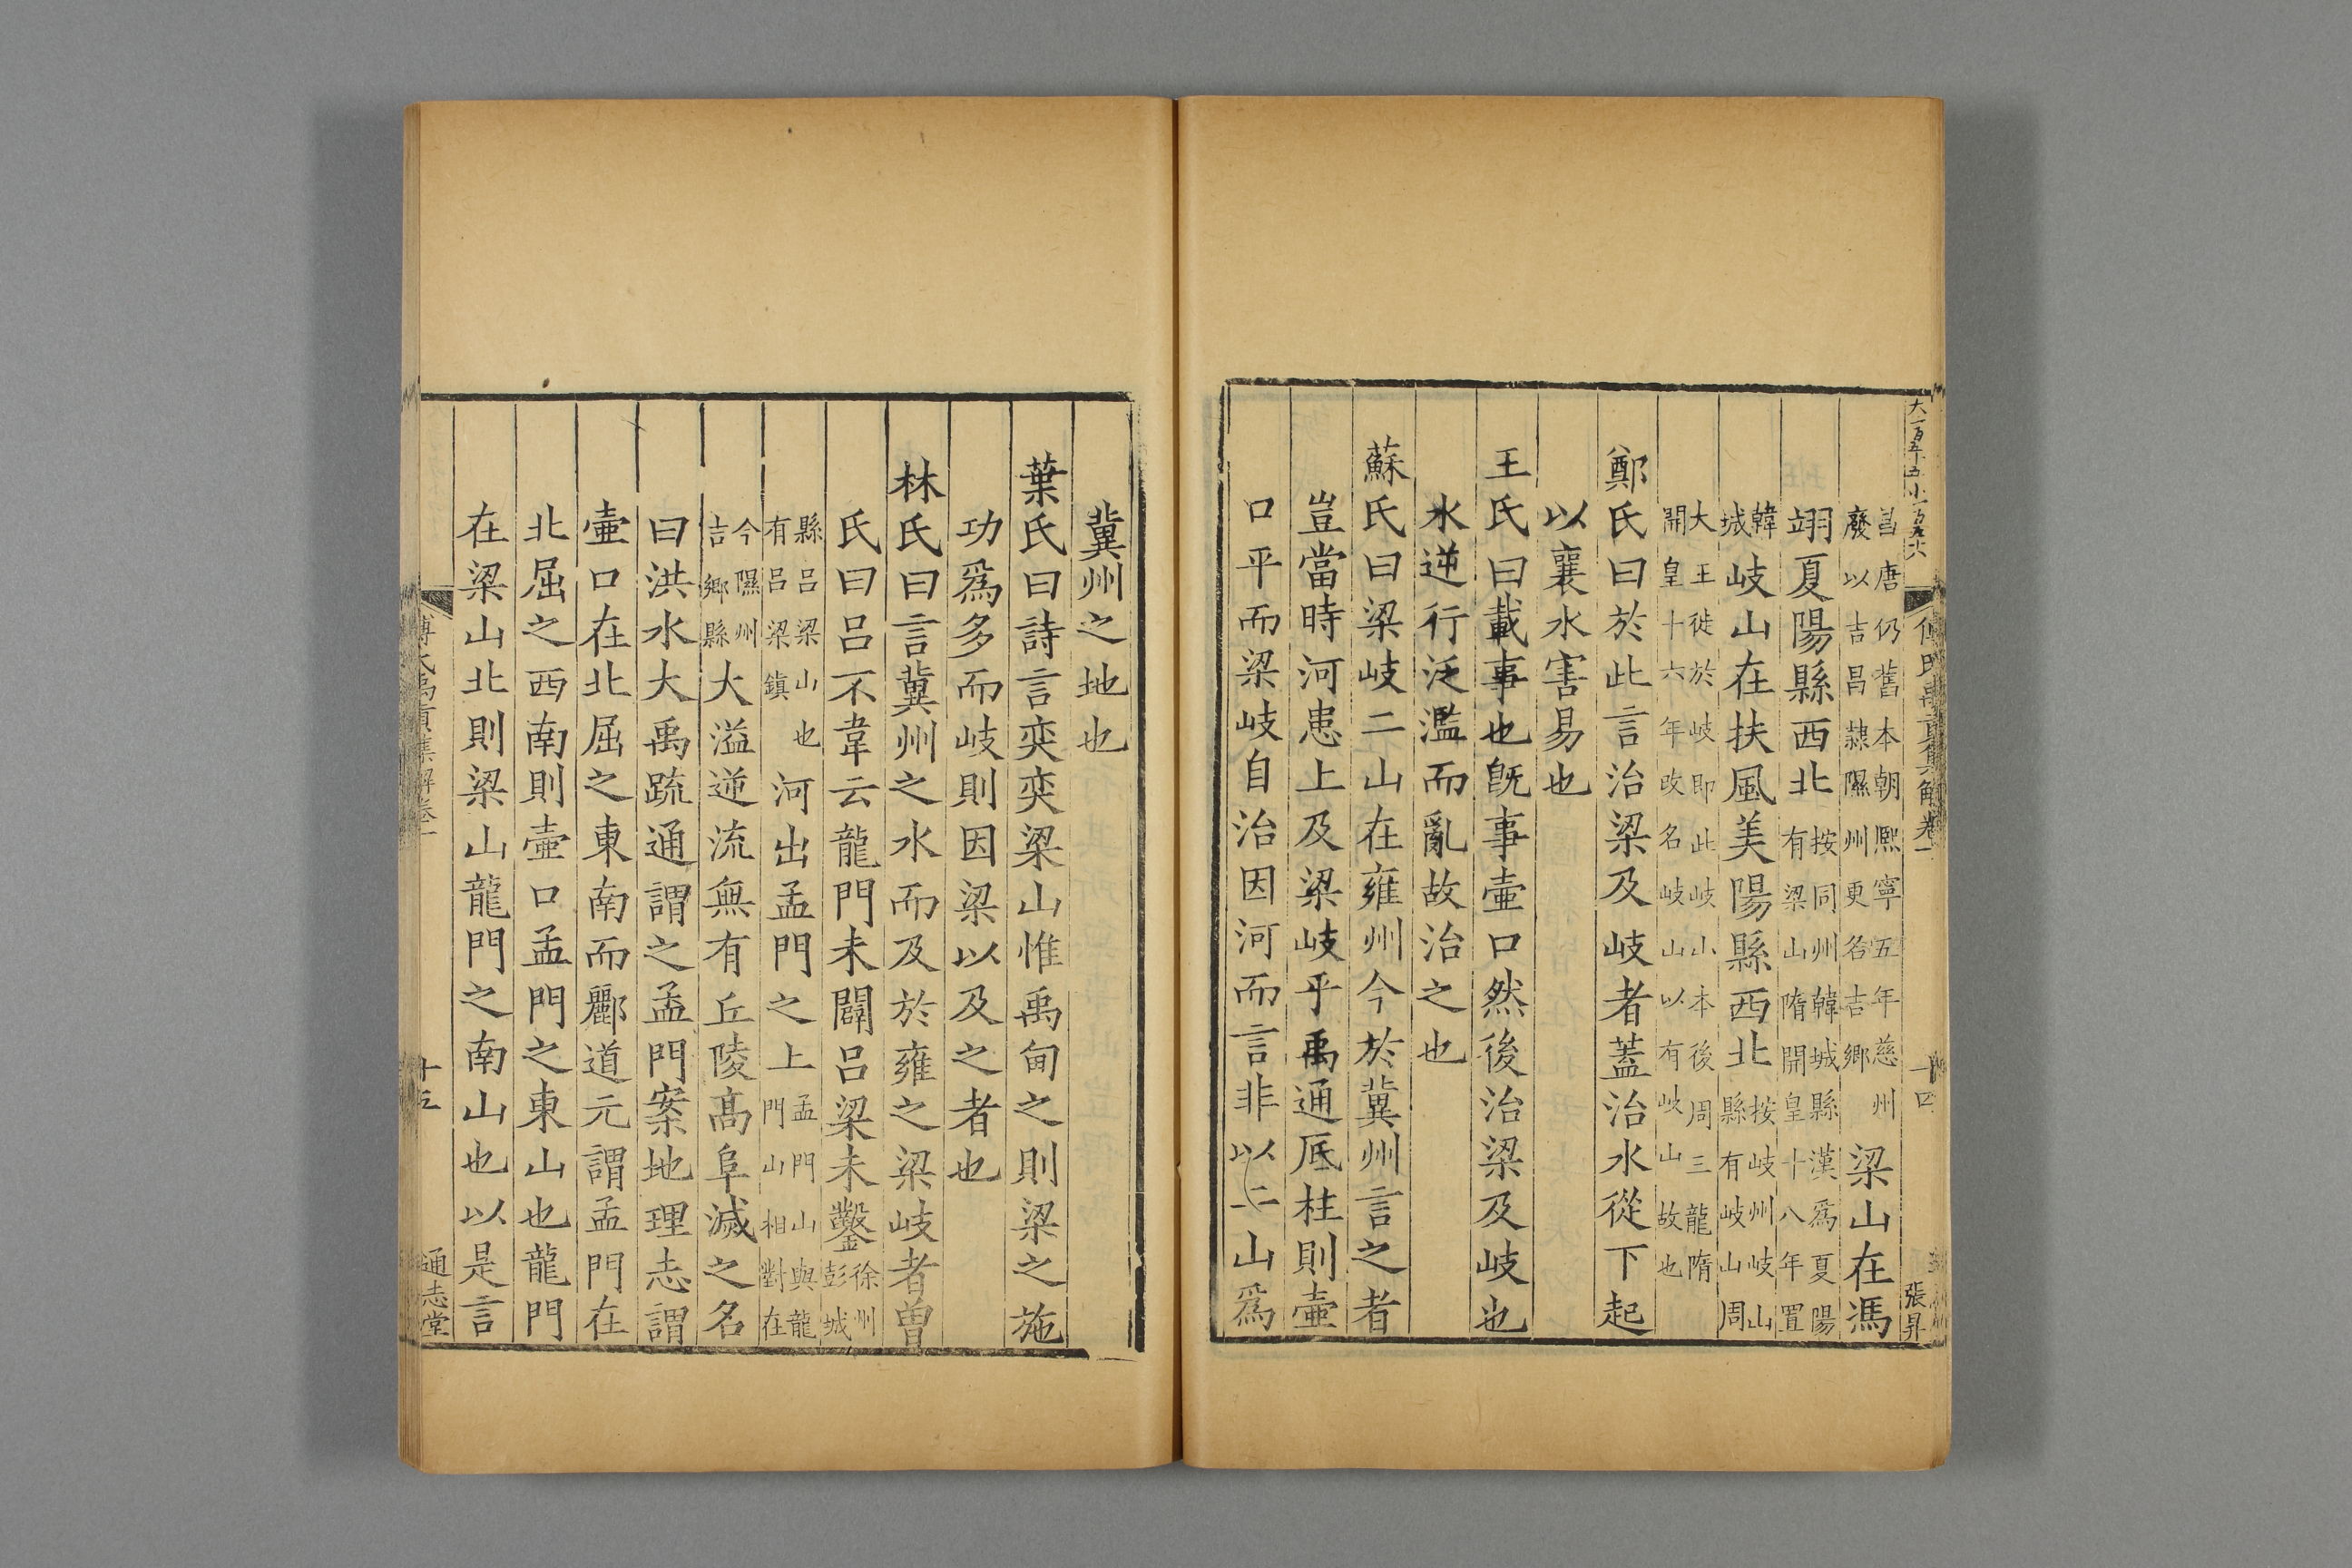 大一百五十五小一百五十六
傅氏禹貢集解卷一
十四
張昇
昌唐仍舊本朝熙寧五年慈州
廢以吉昌隷隰州更名吉鄉
梁山在馮
翊夏陽縣西北
按同州韓城縣漢爲夏陽
有梁山隋開皇十八年置
韓
城
岐山在扶風美陽縣西北
按岐州岐山
縣有岐山周
大王徙於岐即此岐山本後周三龍隋
開皇十六年改名岐山以有岐山故也
鄭氏曰於此言治梁及岐者蓋治水從下起
以襄水害易也
王氏曰載事也旣事壷口然後治梁及岐也
水逆行泛濫而亂故治之也
蘇氏曰梁岐二山在雍州今於冀州言之者
豈當時河患上及梁岐乎禹通厎柱則壷
口平而梁岐自治因河而言非以二山爲
冀州之地也
葉氏曰詩言奕奕梁山惟禹甸之則梁之施
功爲多而岐則因梁以及之者也
林氏曰言冀州之水而及於雍之梁岐者曽
氏曰吕不韋云龍門未闢吕梁未鑿
徐州
彭城
縣吕梁山也
有吕梁鎮
河出孟門之上
孟門山與龍
門山相對在
今隰州
吉鄉縣
大溢逆流無有丘陵髙阜滅之名
曰洪水大禹疏通謂之孟門案地理志謂
壷口在北屈之東南而酈道元謂孟門在
北屈之西南則壷口孟門之東山也龍門
在梁山北則梁山龍門之南山也以是言
傅氏禹貢集解卷一
十五
通志堂